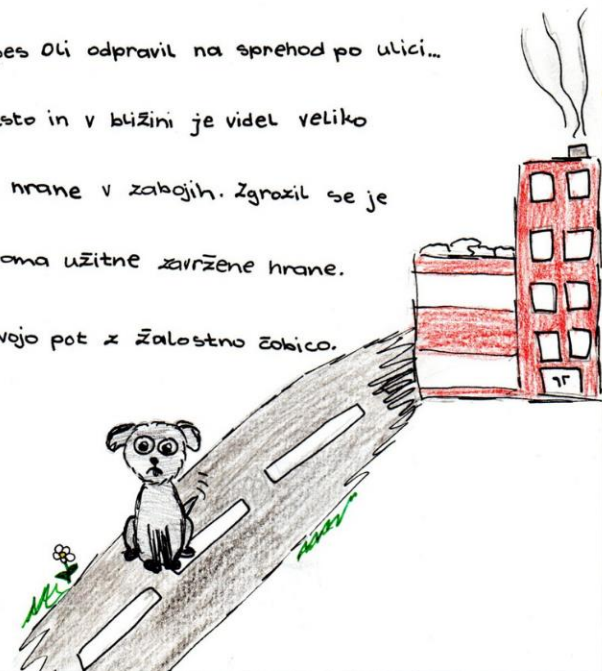 es Oli odpravil na sprehod po ulici...
sto in v bližini je videl veliko
hrane v zabojih. Zgrozil se je
oma užitne zavržene hrane.
vojo pot z žalostno čobico.